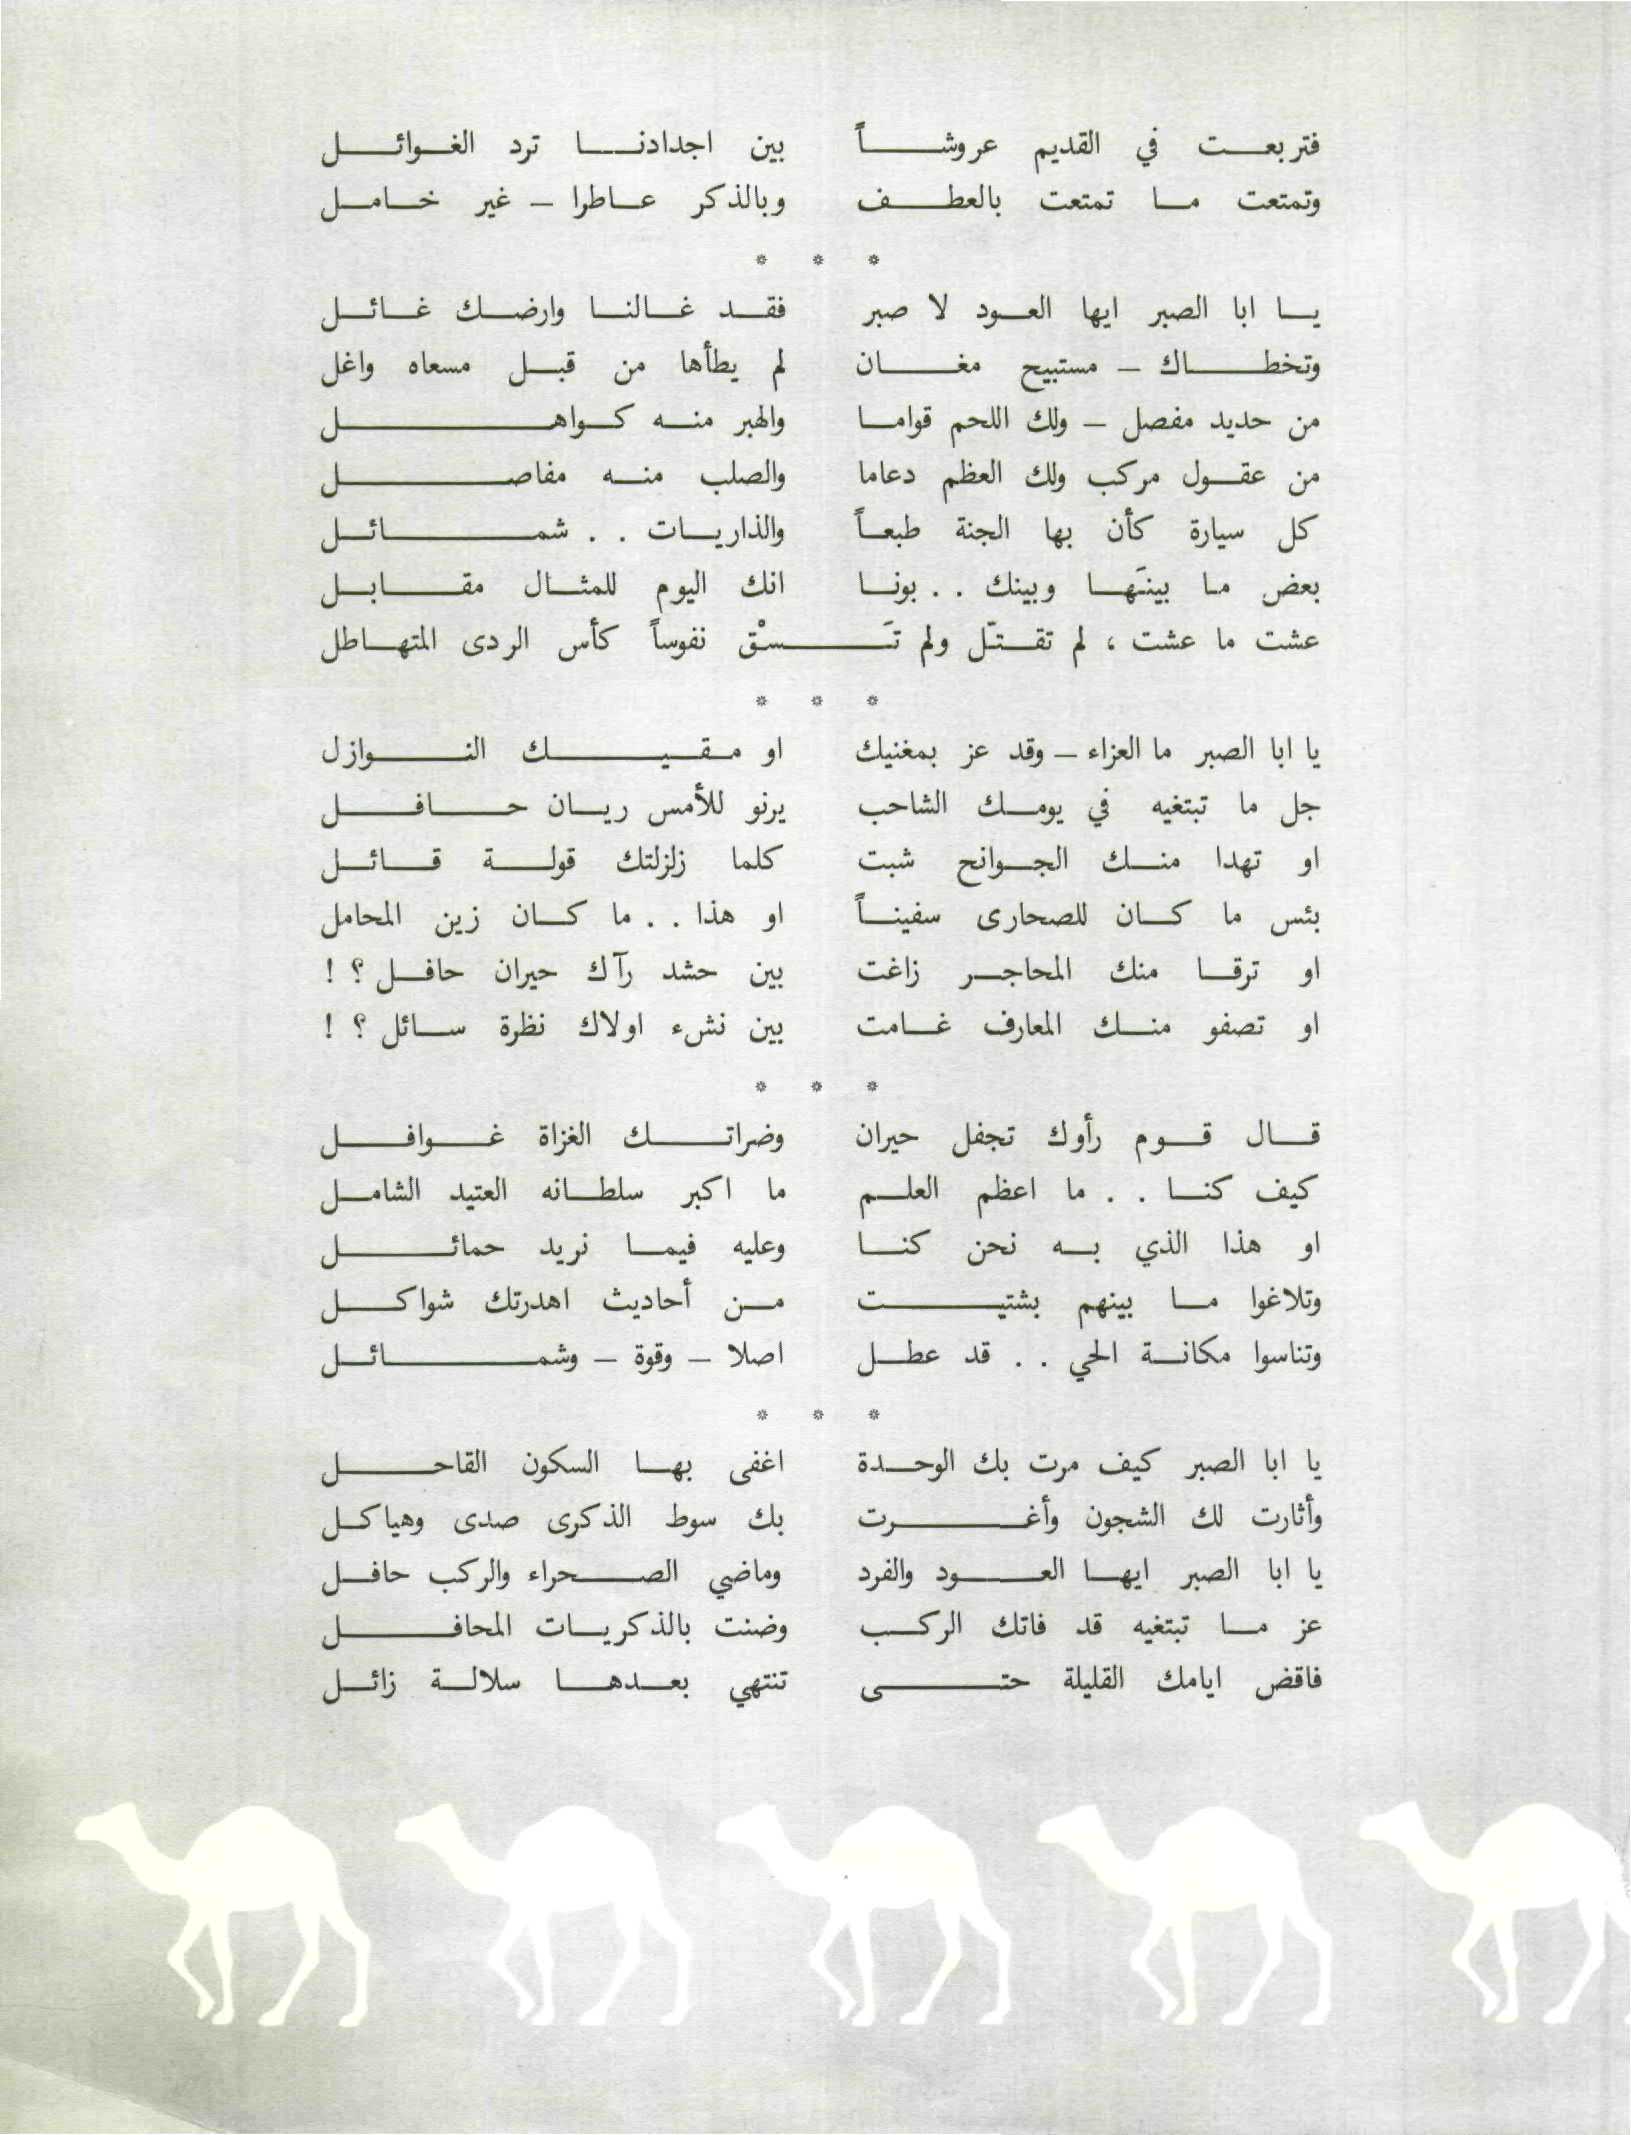 فتربعت في القديم عروشاً بين اجدادنا ترد الغوائل
وتمتعت ما تمتعت بالعطف وبالذكر عاطرا – غير خامل
* * *
يا ابا الصبر ايها العود لا صبر فقد غالنا وارضك غائل
وتخطاك – مستبيح مغان لم يطأها من قبل مسعاه واغل
من حديد مفصل – ولك اللحم قواما والهبر منه كواهل
من عقول مركب ولك العظم دعاما والصلب منه مفاصل
كل سيارة كأن بها الجنة طبعاً والذاريات . . شمائل
بعض ما بينَها وبينك . . بونا انك اليوم للمثال مقابل
عشت ما عشت ، لم تقتّل ولم تَسْق نفوساً كأس الردى المتهاطل
* * *
يا ابا الصبر ما العزاء – وقد عز بمغنيك او مقيك النوازل
جل ما تبتغيه في يومك الشاحب يرنو للأمس ريان حافل
او تهدا منك الجوانح شبت كلما زلزلتك قولة قائل
بئس ما كان للصحارى سفيناً او هذا . . ما كان زين المحامل
او ترقا منك المحاجر زاغت بين حشد رآك حيران حافل ؟ !
او تصفو منك المعارف غامت بين نشء اولاك نظرة سائل ؟ !
* * *
قال قوم رأوك تجفل حيران وضراتك الغزاة غوافل
كيف كنا . . ما اعظم العلم ما اكبر سلطانه العتيد الشامل
او هذا الذي به نحن كنا وعليه فيما نريد حمائل
وتلاغوا ما بينهم بشتيت من أحاديث اهدرتك شواكل
وتناسوا مكانة الحي . . قد عطل اصلا – وقوة – وشمائل
* * *
يا ابا الصبر كيف مرت بك الوحدة اغفى بها السكون القاحل
وأثارت لك الشجون وأغرت بك سوط الذكرى صدى وهياكل
يا ابا الصبر ايها العود والفرد وماضي الصحراء والركب حافل
عز ما تبتغيه قد فاتك الركب وضنت بالذكريات المحافل
فاقض ايامك القليلة حتى تنتهي بعدها سلالة زائل